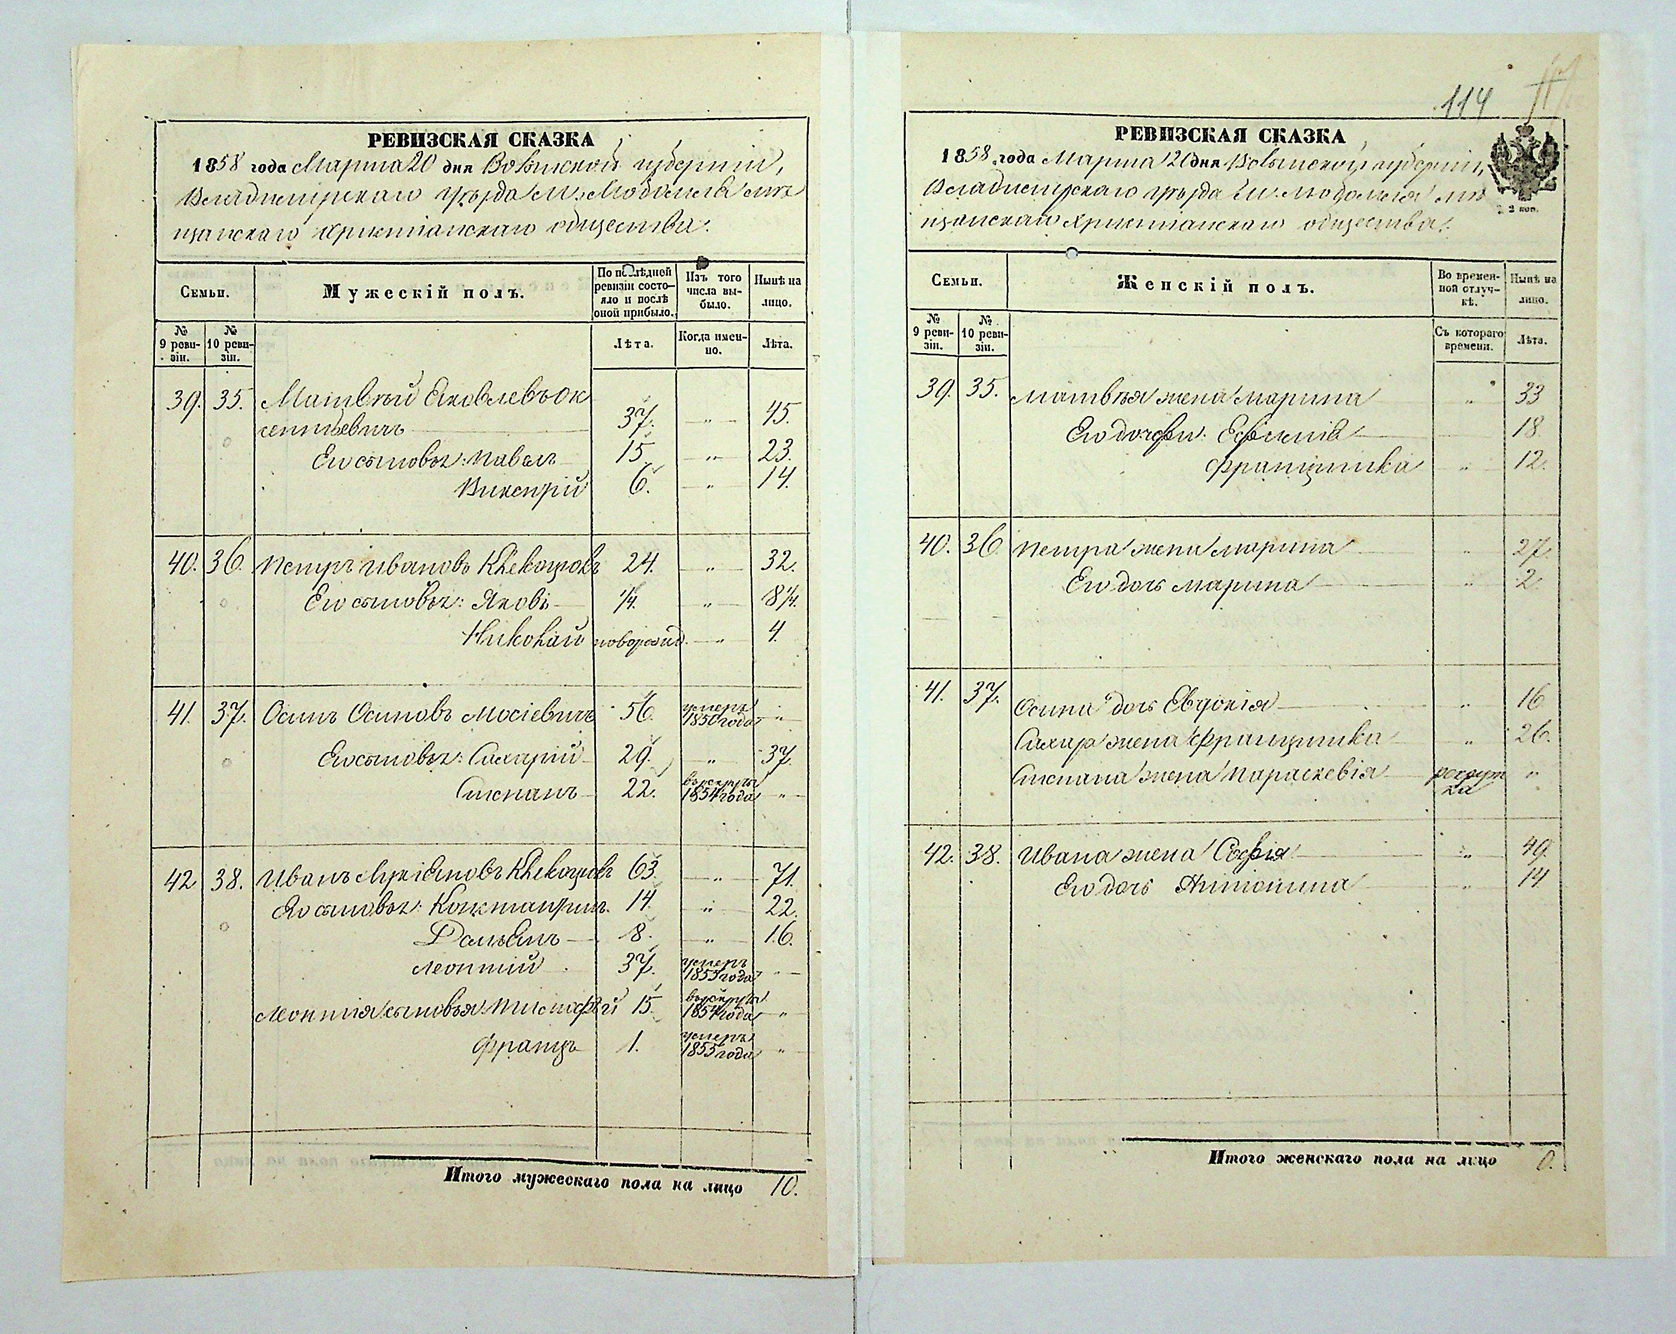 РЕВИЗСКАЯ СКАЗКА
1858 года Марта 20 дня Волынской губерніи,
Владимірскаго уѣзда М. Любомля мѣ
щанскаго христіанскаго общества.
Семьи.
Мужескій полъ.
По послѣдней ревизіи состояло и послѣ оной прибыло.
Изъ того числа выбыло.
Нынѣ на лицо.
№ 9 ревизіи.
№ 10 ревизіи.
Лѣта.
Когда именно.
Лѣта.
39. 35. Матвѣй Яковлевъ Ок
сентьевичъ 37. „ 45.
Его сыновья: Павелъ 15 „ 23.
Викентій 6. „ 14.
40. 36. Петръ Ивановъ 24. „ 32.
Его сыновья: Яковъ 1/4. „ 8 1/4.
Николай новорожд. „ 4.
41. 37. Осипъ Осиповъ Мосіевичъ 56. умеръ 1850 года „
Его сыновья: Сахарій 29. „ 37.
Степанъ 22. въ рекруты 1854 года „
42. 38. Иванъ 63. „ 71.
Его сыновья: Константинъ. 14. „ 22.
8. „ 16.
Леонтій 37. умеръ 1853 года „
Леонтія сыновья: Тимофѣй 15. въ рекруты 1854 года „
Францъ 1. умеръ 1855 года „
Итого мужескаго пола на лицо 10.
114
РЕВИЗСКАЯ СКАЗКА
1858 года Марта 20 дня Волынской губерніи,
Владимірскаго уѣзда М. Любомля мѣ
щанскаго христіанскаго общества.
2 коп.
Семьи.
Женскій полъ.
Во временной отлучкѣ.
Нынѣ на лицо.
№ 9 ревизіи.
№ 10 ревизіи.
Съ котораго времени.
Лѣта.
39. 35. Матвѣя жена Марина „ 33
Его дочери: Ефимія 18.
Францишка „ 12.
40. 36. Петра жена Марина „ 27.
Его дочь Марина „ 2
41. 37. Осипа дочь Евдокія „ 16
Сахара жена Францишка „ 26.
Степана жена Параскевія рекрутка „
42. 38. Ивана жена Софія „ 49.
Его дочь Антонина „ 14
Итого женскаго пола на лицо